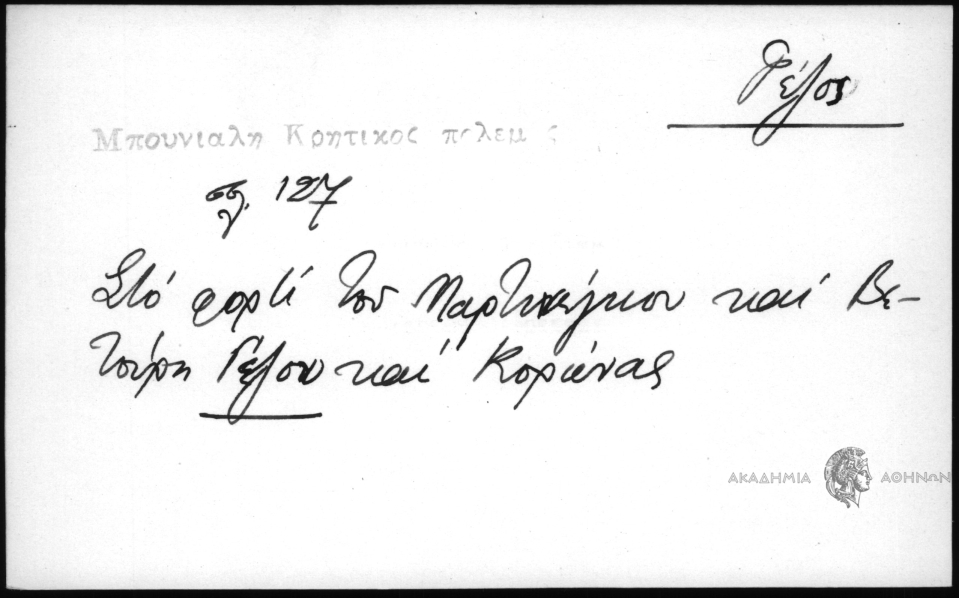 Γέζος
Μπουνιαλη Κρητικος πολεμ ς
σελ. 127
Στό φορτί τοῦ Μαρτινέγκου καί Βε-
τούρη Γέζου καί Κορώνας
ΑΚΑΔΗΜΙΑ ΑΘΗΝΩΝ